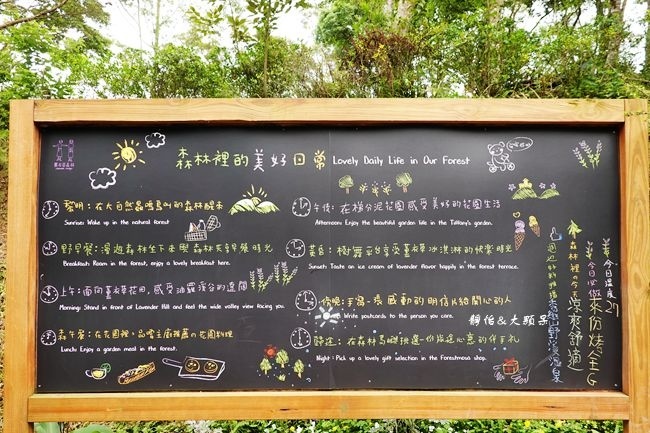 森林裡的美好日常 Lovely Daily Life in Our Forest
黎明：在大自然蟲鳴鳥叫的森林醒來
Sunrise: Wake up in the natural forest.
野早餐：漫遊森林坐下來與森林共享早餐時光
Breakfast: Roam in the forest, enjoy a lovely breakfast here.
上午：面向薰衣草花田，感受油羅溪谷的遼闊
Morning: Stand in front of Lavender Hill and feel the wide valley facing you.
森午餐：在花園裡，品嚐主廚推薦の花園料理
Lunch: Enjoy a garden meal in the forest.
午後：在蒂芬妮花園感受美好的花園生活
Afternoon: Enjoy the beautiful garden life in the Tiffany's garden.
黃昏：樹舞平台享受薰衣草冰淇淋的快樂時光
Sunset: Taste an ice cream of lavender flavor happily in the forest terrace.
傍晚：手寫一張感動的明信片給關心的人
Write postcards to the person you care.
靜怡&大頭呆
靜夜：在森林島嶼挑選一份放送心意的伴手禮
Night: Pick up a lovely gift selection in the Forestmosa shop.
森林裡今天
涼爽舒適
今日溫度27
今日必做